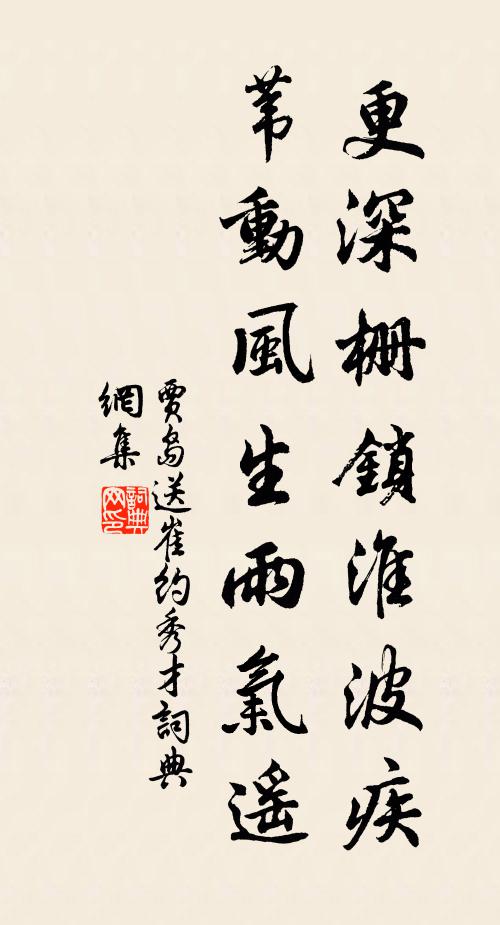 更深栅鎖淮波疾
苇動風生雨氣遥
賈島送崔約秀才詞典
網集
詞典
网印